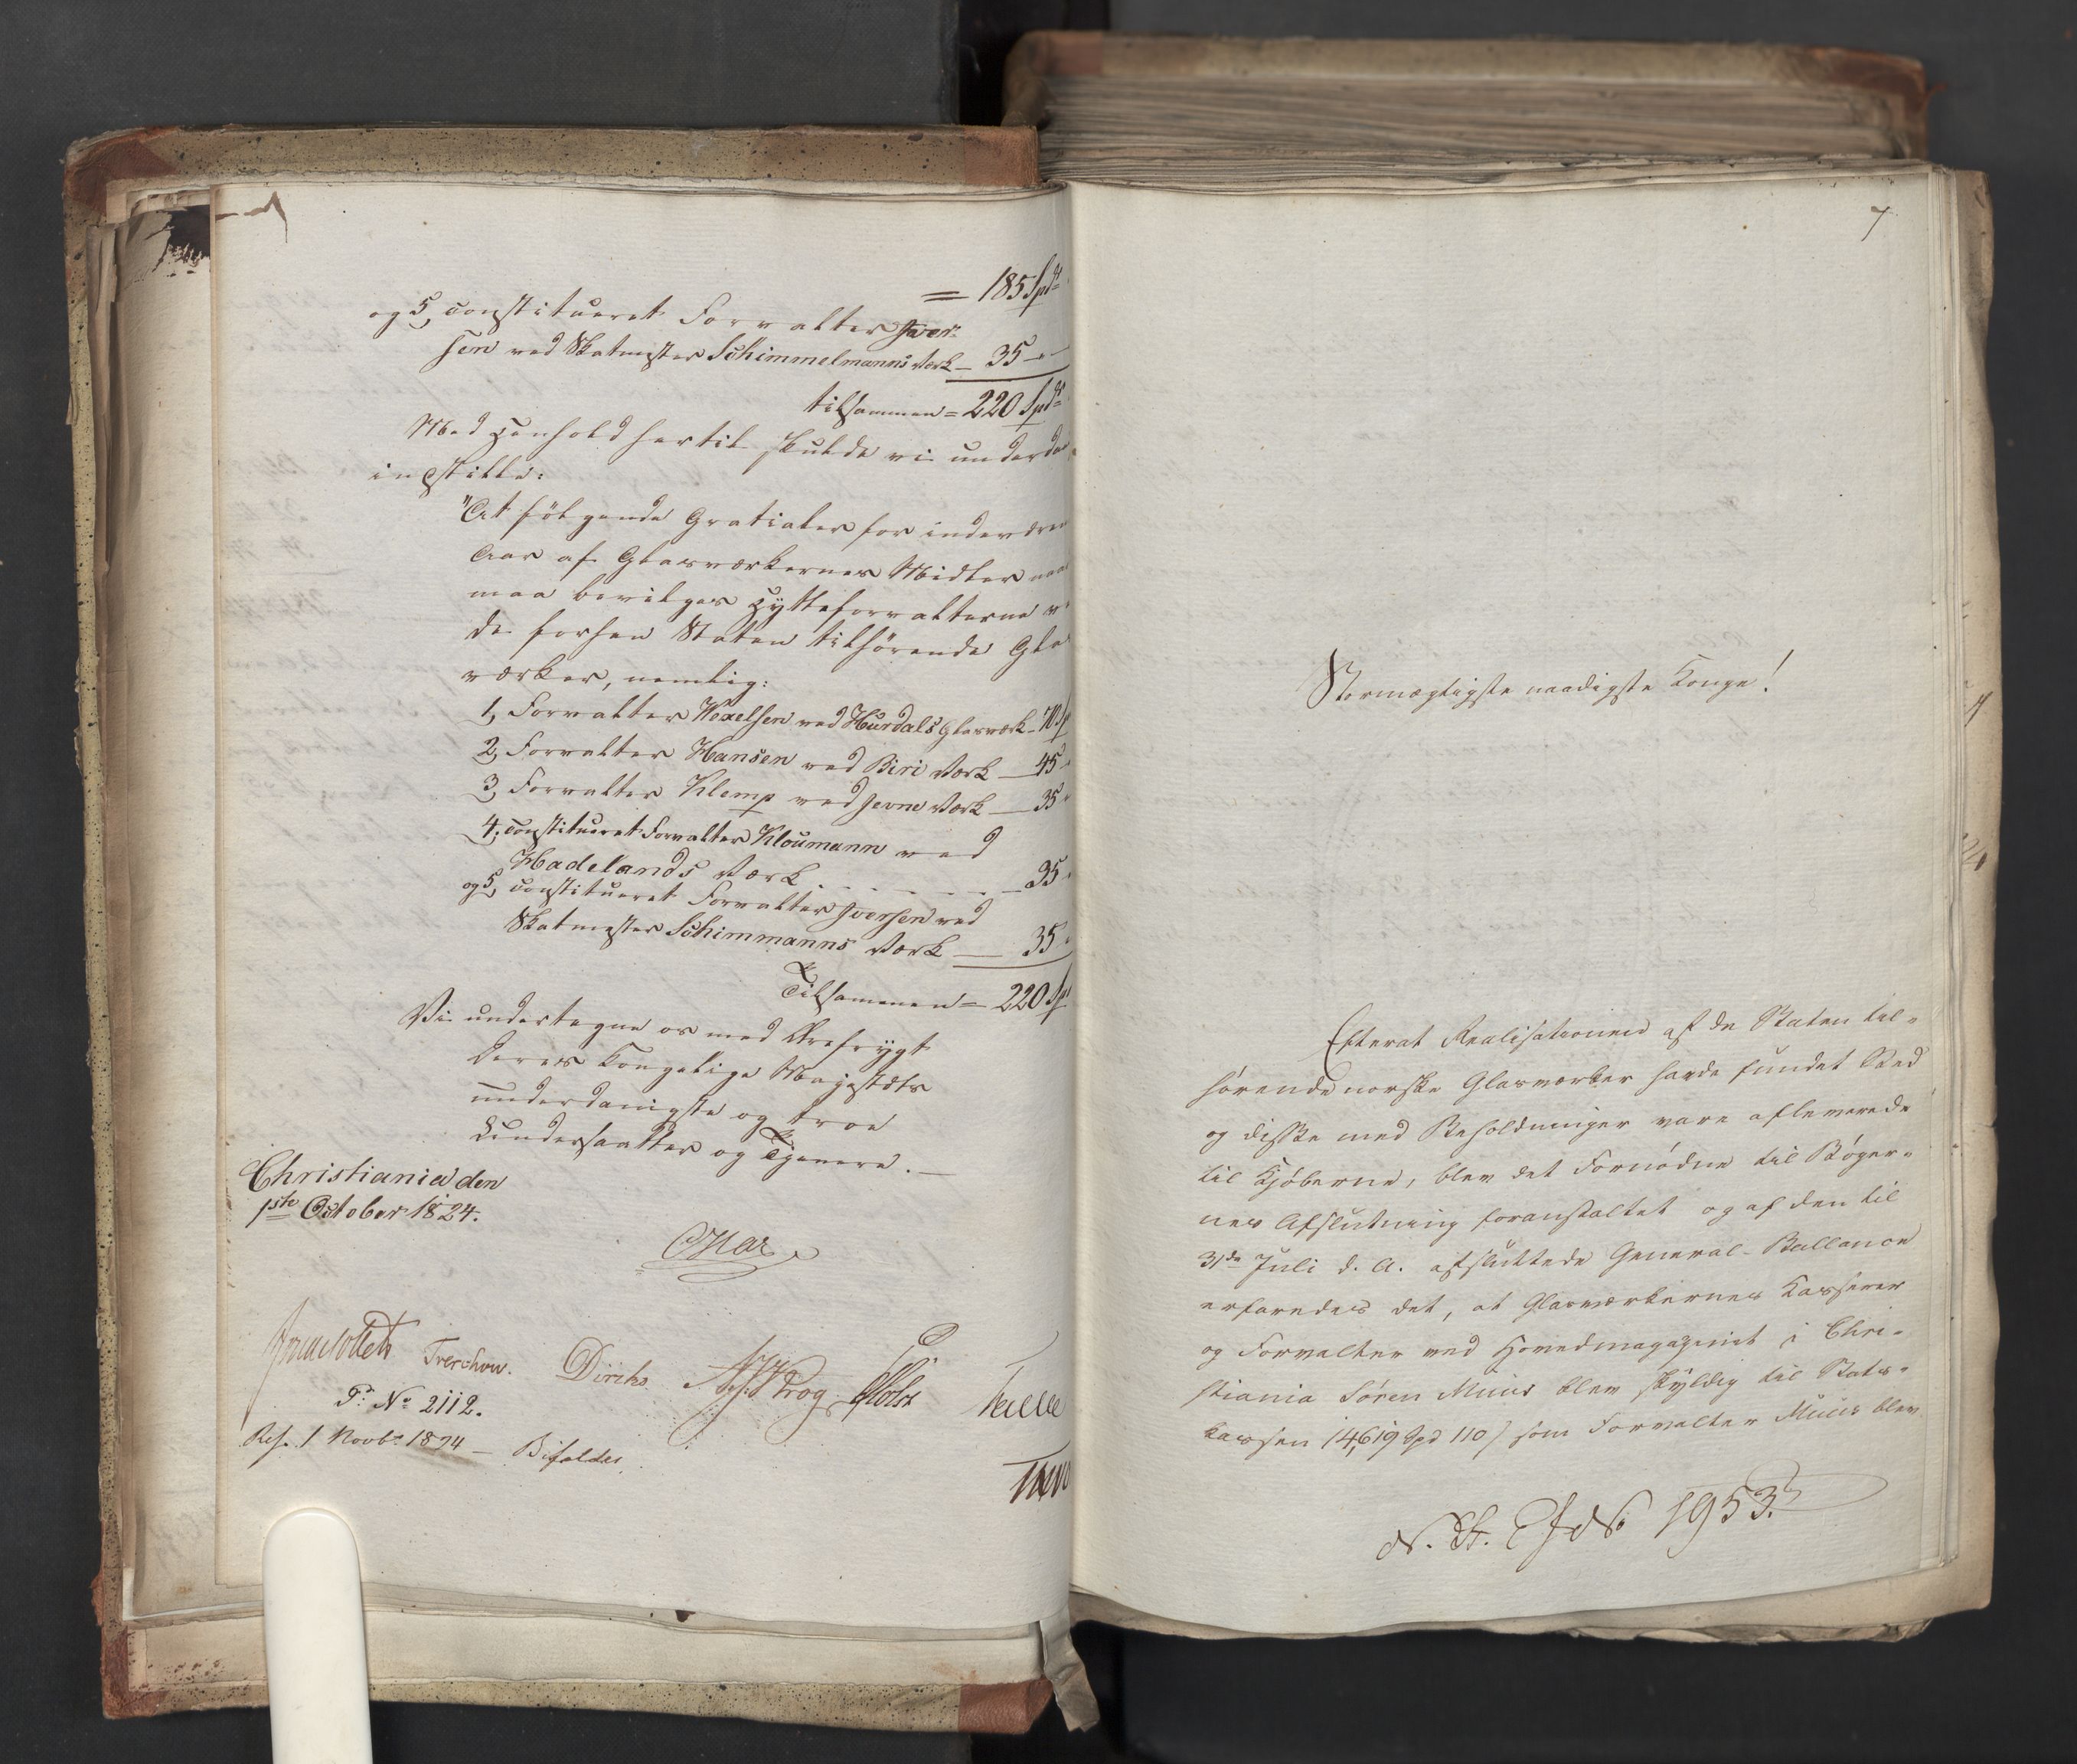 = 185 Spdr
og 5, constitueret Forvalter Iver-
sen ved Skatmester Schimmelmanns Værk — 35 —
tilsammen = 220 Spdr
Med Henhold hertil skulde vi underda
indstille:
"At følgende Gratialer for indeværen
Aar af Glasværkernes Midler naa
maa bevilges Hytteforvalterne v
de forhen Staten tilhørende Gla
værker, nemlig:
1, Forvalter Wexelsen ved Hurdals Glasværk — 70 Sp
2, Forvalter Hansen ved Biri Værk — 45
3, Forvalter Klemp ved Jevne Værk — 35
4, constitueret Forvalter Kloumann ved
Hadelands Værk — 35
og 5, constitueret Forvalter Iversen ved
Skatmester Schimmanns Værk — 35
Tilsammen = 220 Sp
Vi undertegne os med Ærefrygt
Deres Kongelige Majestæts
underdanigste og troe
Undersaatter og Tjenere. —
Christiania den
1ste October 1824.
Treschow. Diriks. Krog Holst
Pr No 2112.
Res. 1 Novbr 1824 — Bifaldes.
7
Stormægtigste naadigste Konge!
Efterat Realisationen af de Staten til-
hørende norske Glasværker havde fundet Sted
og disse med Beholdninger vare afleverede
til Kjøberne, blev det Fornødne til Bøger-
nes Afslutning foranstaltet og af den til
31de Juli d. A. afsluttede General-Ballance
erfaredes det, at Glasværkernes Kasserer
og Forvalter ved Hovedmagazinet i Chri-
stiania Sören Muus blev skyldig til Stats-
kassen 14,619 Spd 110 / som Forvalter Muus blev
1953.